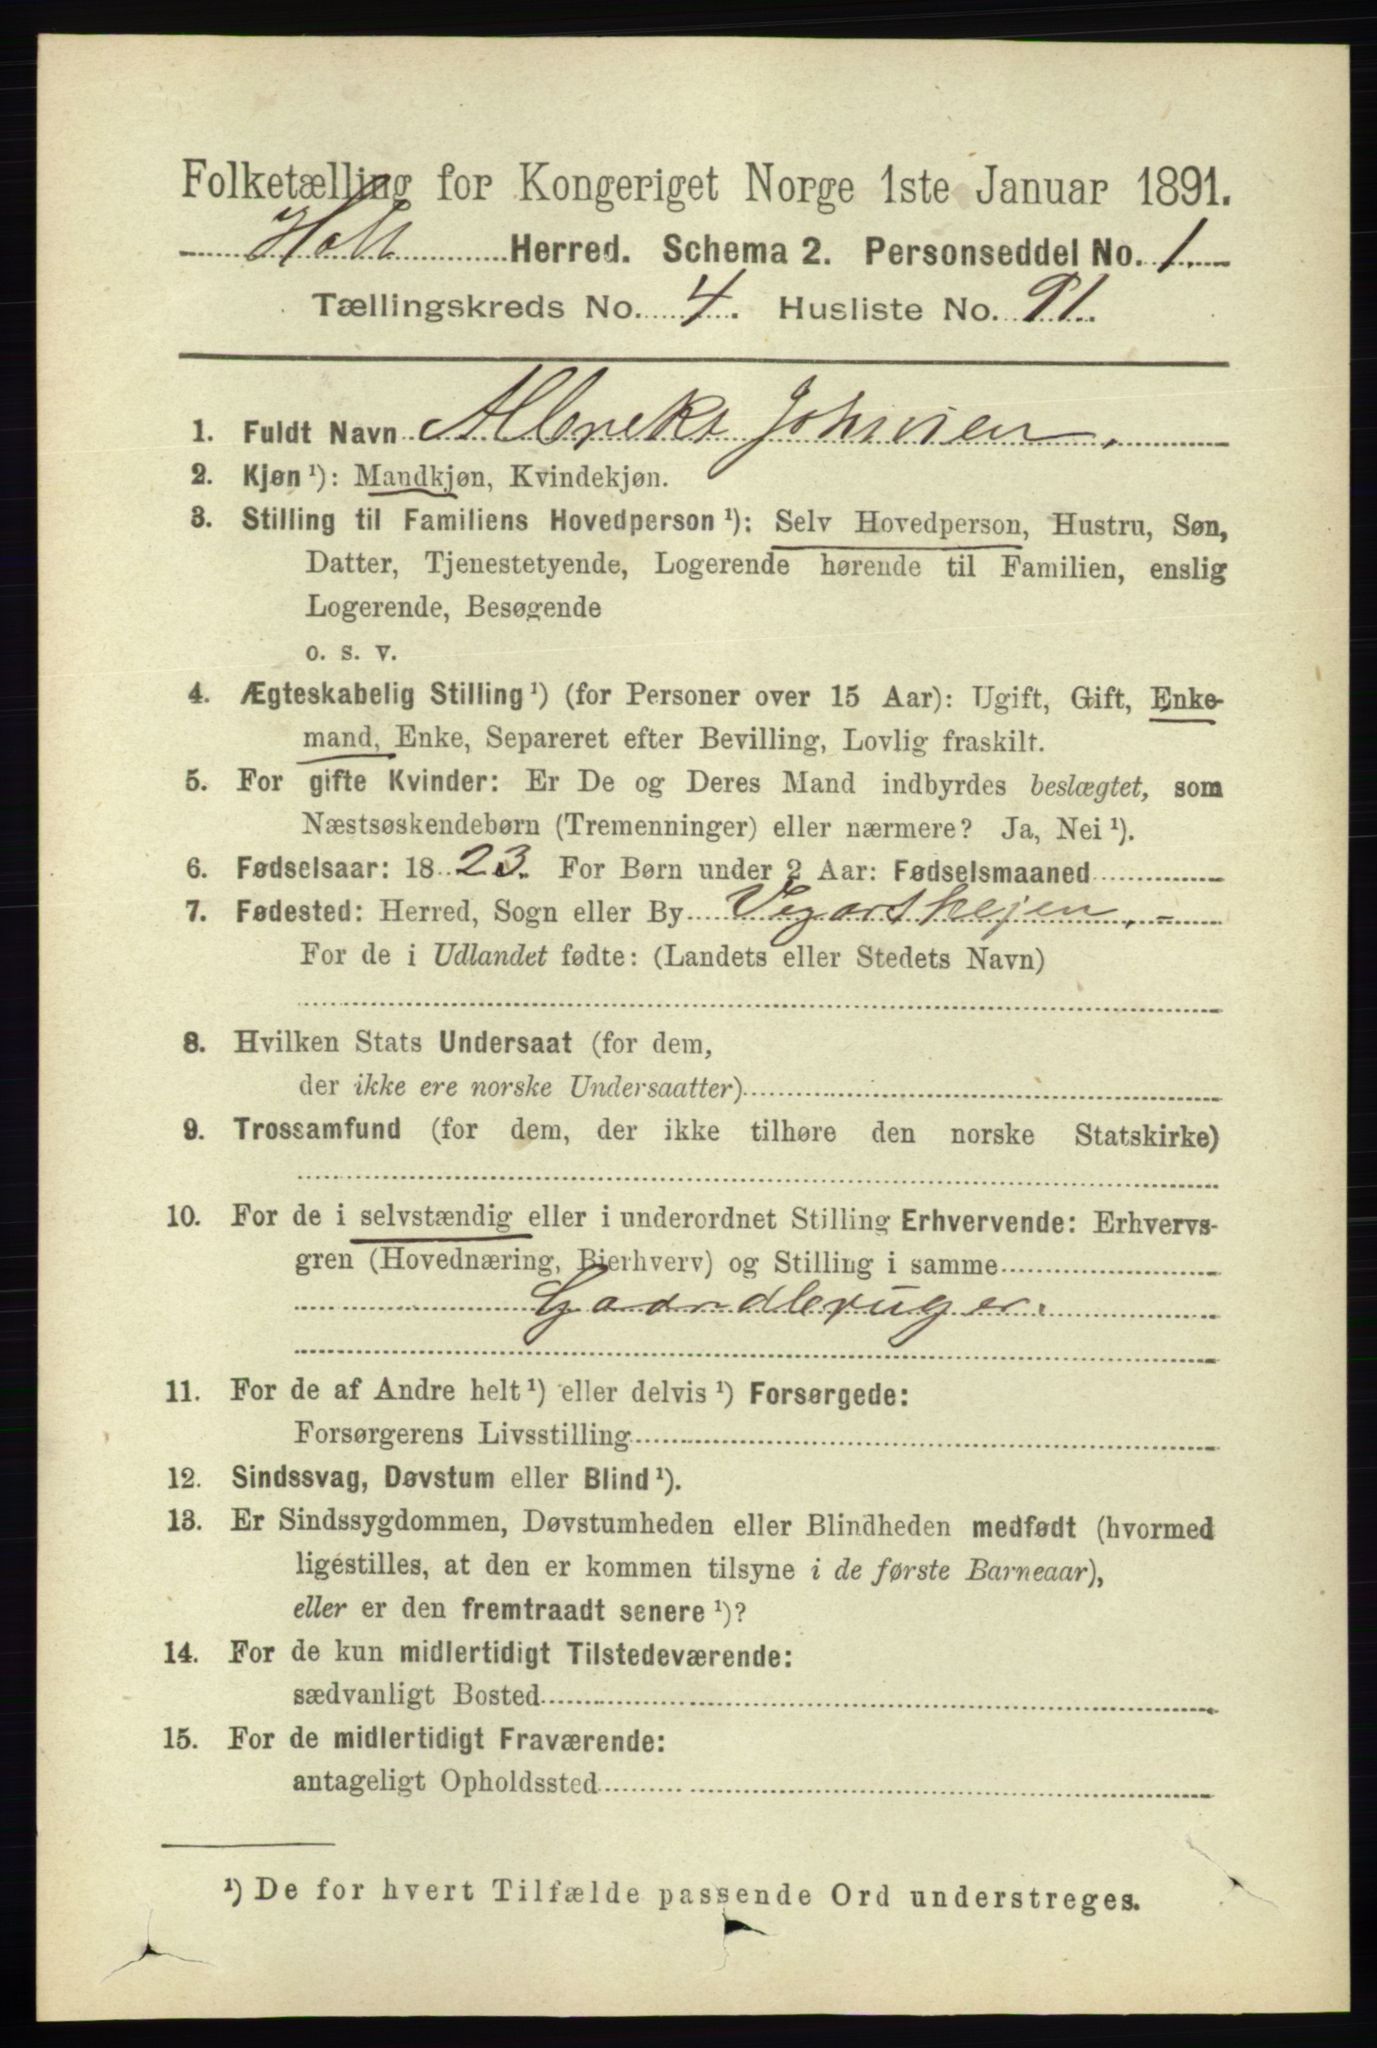 Folketælling for Kongeriget Norge 1ste Januar 1891.
Holt Herred. Schema 2. Personseddel No. 1.
Tællingskreds No. 4. Husliste No. 91.
1. Fuldt Navn Albrekt Johnsen,
2. Kjøn ¹): Mandkjøn, Kvindekjøn.
3. Stilling til Familiens Hovedperson ¹): Selv Hovedperson, Hustru, Søn,
Datter, Tjenestetyende, Logerende hørende til Familien, enslig
Logerende, Besøgende
o. s. v.
4. Ægteskabelig Stilling ¹) (for Personer over 15 Aar): Ugift, Gift, Enke-
mand, Enke, Separeret efter Bevilling, Lovlig fraskilt.
5. For gifte Kvinder: Er De og Deres Mand indbyrdes beslægtet, som
Næstsøskendebørn (Tremenninger) eller nærmere? Ja, Nei ¹).
6. Fødselsaar: 1823. For Børn under 2 Aar: Fødselsmaaned
7. Fødested: Herred, Sogn eller By Vegarshejen, -
For de i Udlandet fødte: (Landets eller Stedets Navn)
8. Hvilken Stats Undersaat (for dem,
der ikke ere norske Undersaatter)
9. Trossamfund (for dem, der ikke tilhøre den norske Statskirke)
10. For de i selvstændig eller i underordnet Stilling Erhvervende: Erhvervs-
gren (Hovednæring, Bierhverv) og Stilling i samme
Gaardbruger.
11. For de af Andre helt ¹) eller delvis ¹) Forsørgede:
Forsørgerens Livsstilling
12. Sindssvag, Døvstum eller Blind ¹).
13. Er Sindssygdommen, Døvstumheden eller Blindheden medfødt (hvormed
ligestilles, at den er kommen tilsyne i de første Barneaar),
eller er den fremtraadt senere ¹)?
14. For de kun midlertidigt Tilstedeværende:
sædvanligt Bosted
15. For de midlertidigt Fraværende:
antageligt Opholdssted
¹) De for hvert Tilfælde passende Ord understreges.